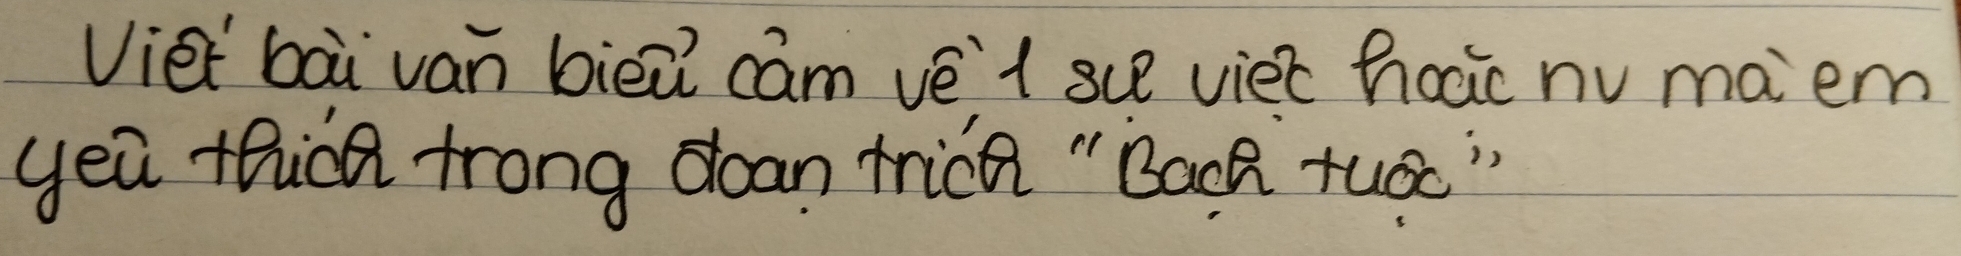 Viết bài văn biểu cảm về 1 sự việc hoặc nv mà em
yêu thích trong đoạn trích "Bạch tuộc"